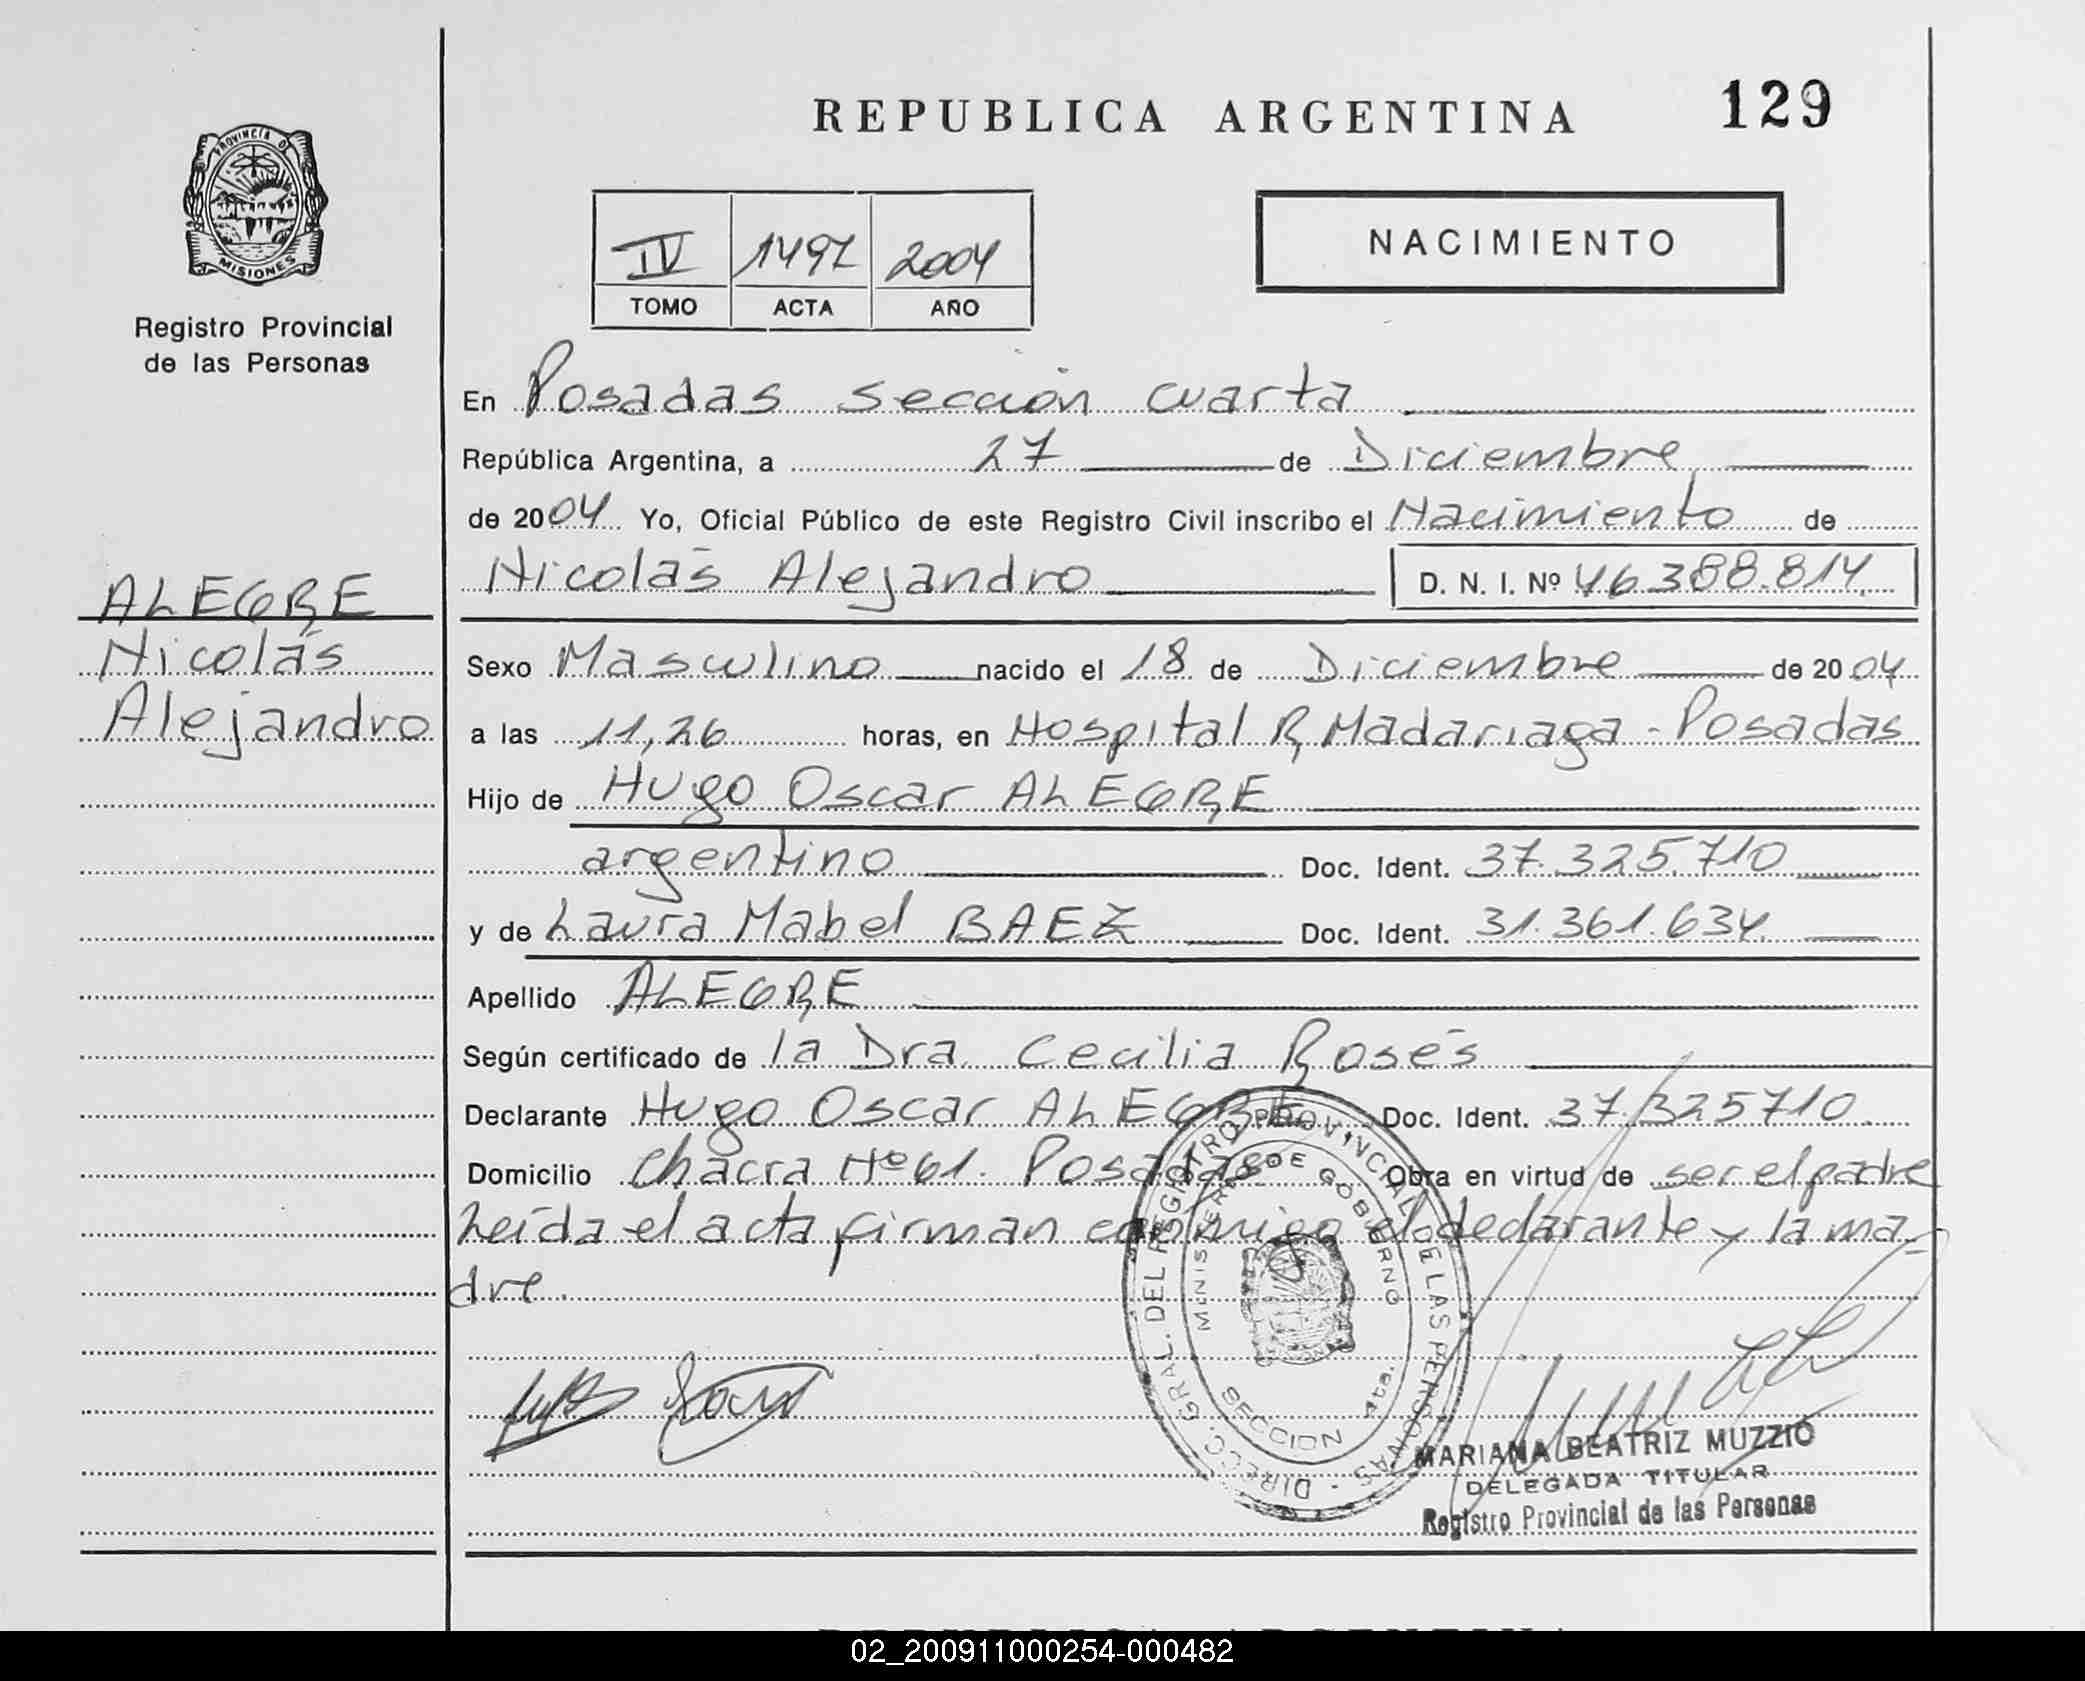 REPUBLICA ARGENTINA 129
PROVINCIA DE
MISIONES
Registro Provincial
de las Personas
NACIMIENTO
IV 1497 2004
TOMO ACTA AÑO
En Posadas sección cuarta
República Argentina, a 27 de Diciembre
de 2004 Yo, Oficial Público de este Registro Civil inscribo el Nacimiento de
Nicolás Alejandro D. N. I. Nº 46.388.814
ALEGRE
Nicolás
Alejandro
Sexo Masculino nacido el 18 de Diciembre de 2004
a las 11,26 horas, en Hospital R. Madariaga - Posadas
Hijo de Hugo Oscar ALEGRE
argentino Doc. Ident. 37.325.710
y de Laura Mabel BAEZ Doc. Ident. 31.361.634
Apellido ALEGRE
Según certificado de la Dra. Cecilia Rosés
Declarante Hugo Oscar ALEGRE Doc. Ident. 37.325710
Domicilio Chacra Nº 61. Posadas Obra en virtud de ser el padre
Leída el acta firman conmigo el declarante y la ma-
dre.
DIRECC. GRAL. DEL REGISTRO PROVINCIAL DE LAS PERSONAS
MINISTERIO DE GOBIERNO
SECCION 4ta.
MARIANA BEATRIZ MUZZIO
DELEGADA TITULAR
Registro Provincial de las Personas
02_200911000254-000482